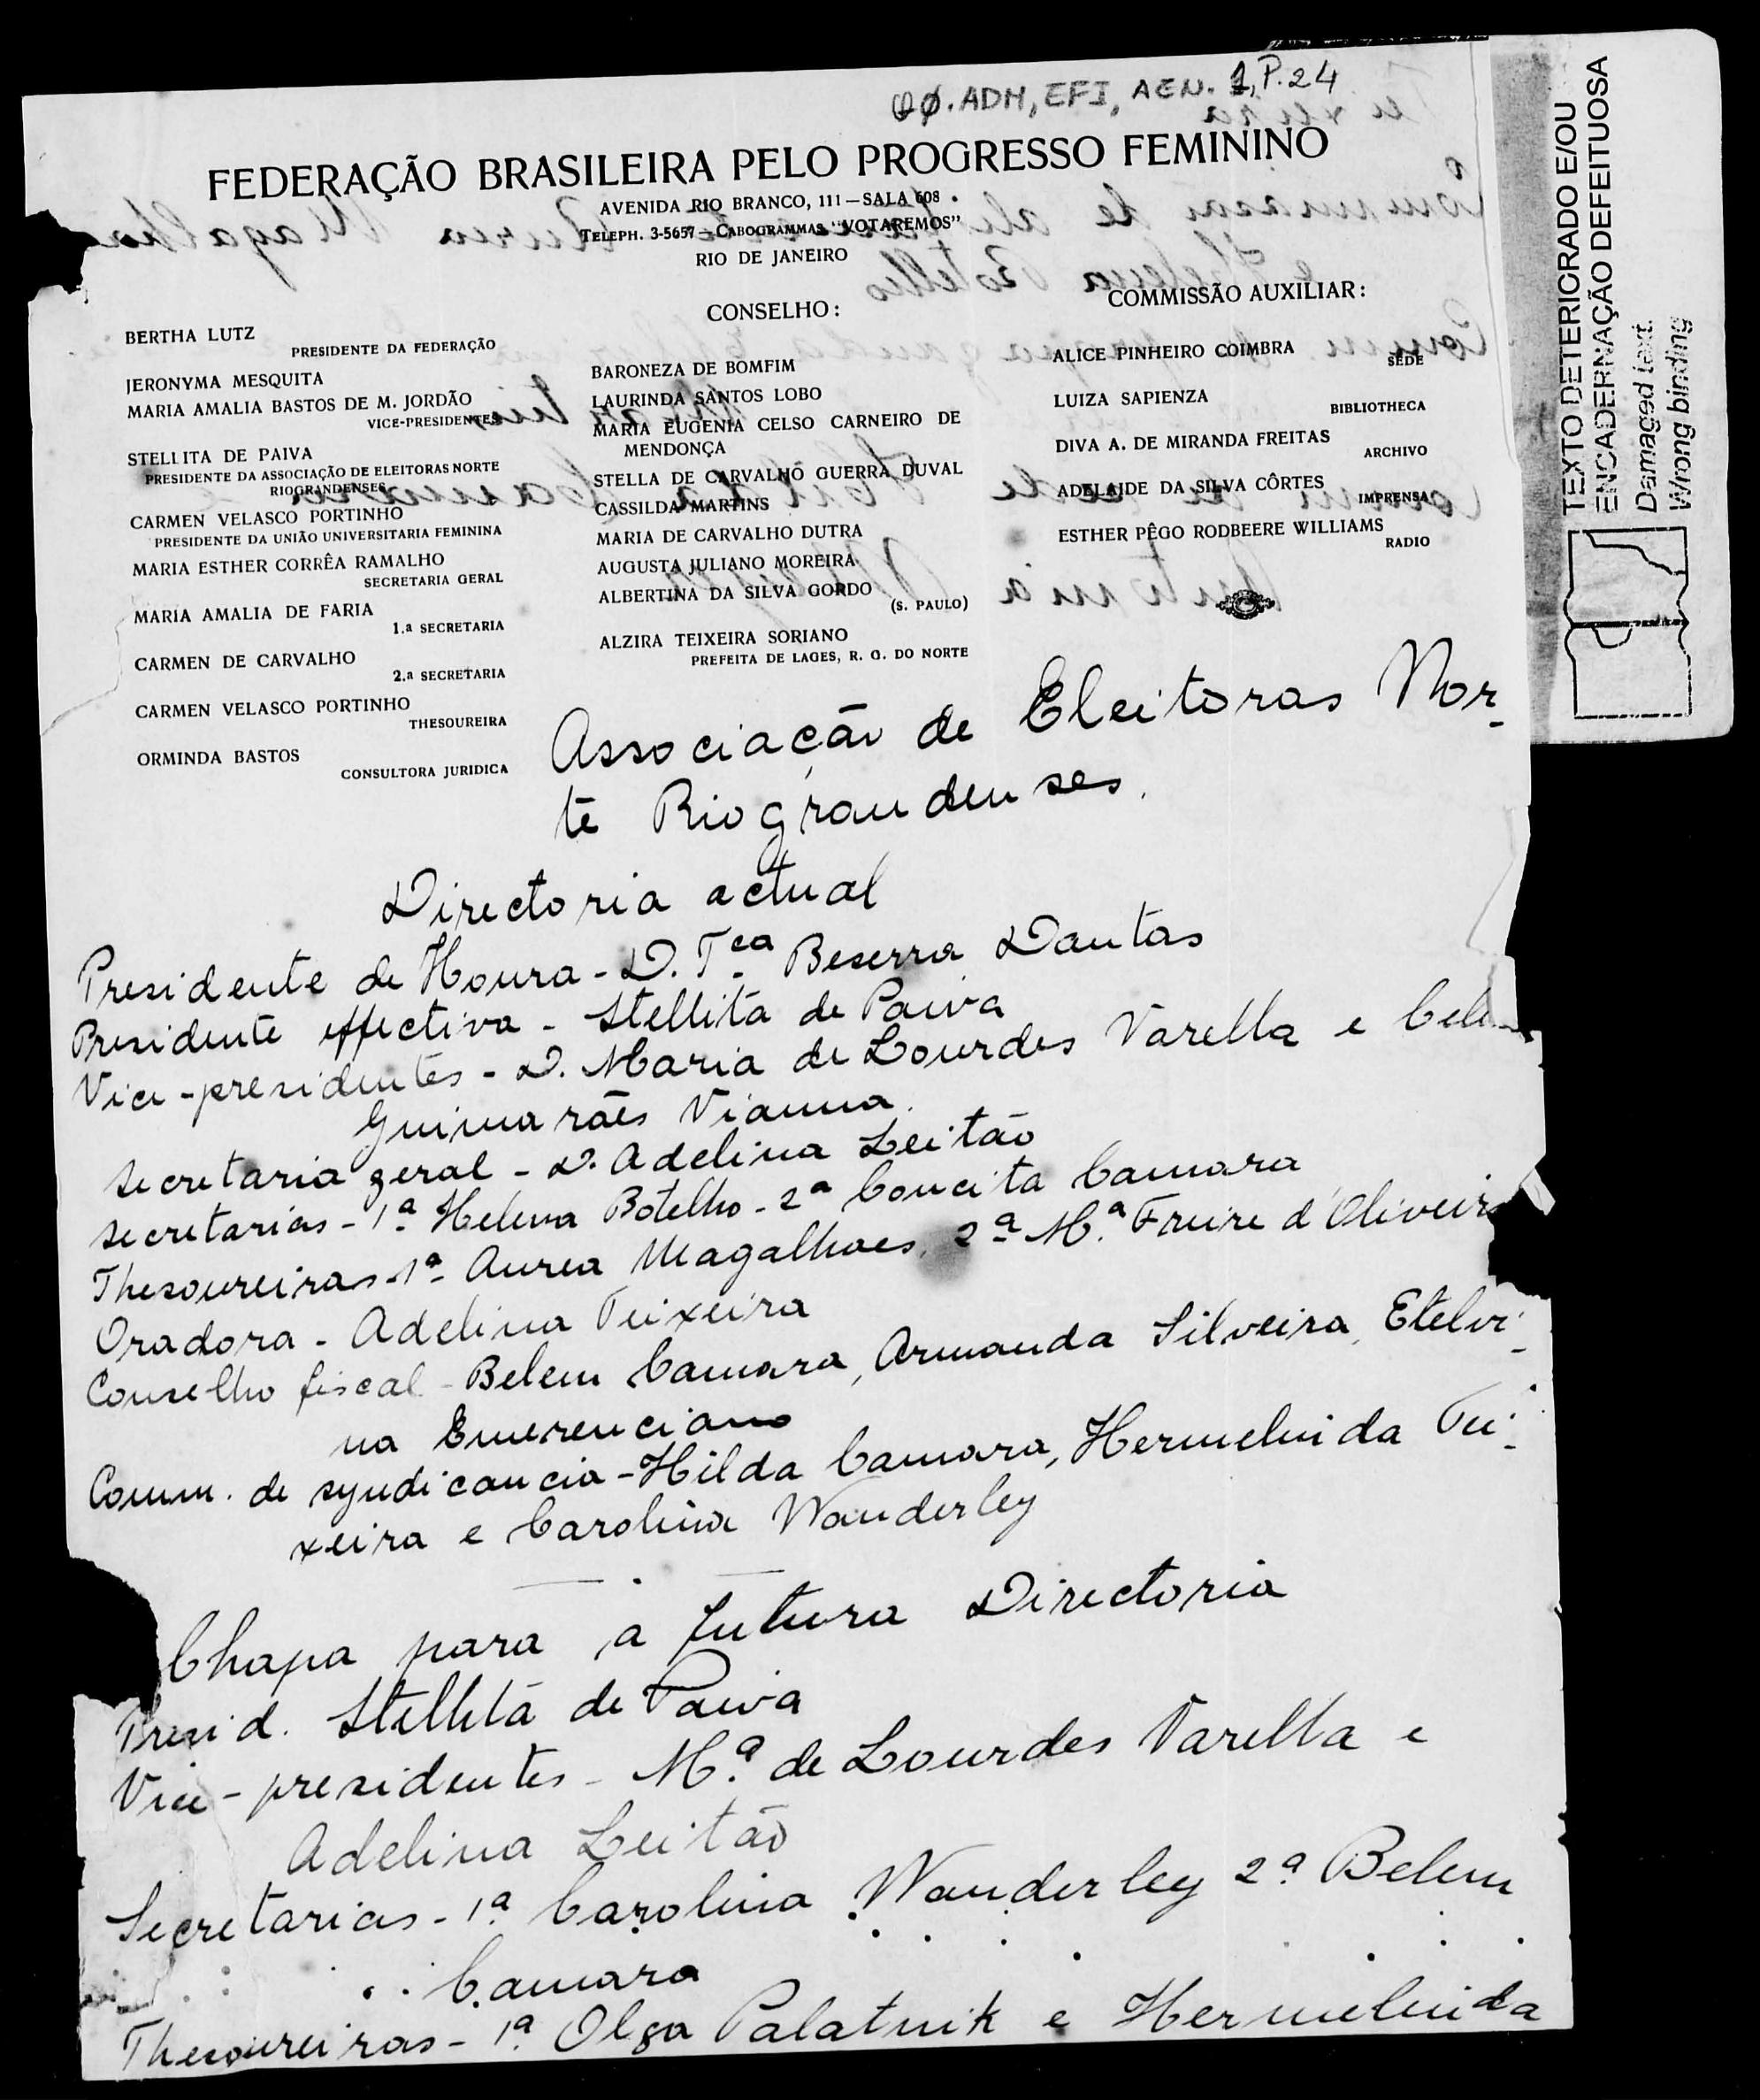 QØ.ADM, EFI, AEN. 1, P.24
FEDERAÇÃO BRASILEIRA PELO PROGRESSO FEMININO
AVENIDA RIO BRANCO, 111—SALA 608
TELEPH. 3-5657—CABOGRAMMAS "VOTAREMOS"
RIO DE JANEIRO
BERTHA LUTZ
PRESIDENTE DA FEDERAÇÃO
JERONYMA MESQUITA
MARIA AMALIA BASTOS DE M. JORDÃO
VICE-PRESIDENTES
STELLITA DE PAIVA
PRESIDENTE DA ASSOCIAÇÃO DE ELEITORAS NORTE
RIOGRANDENSES
CARMEN VELASCO PORTINHO
PRESIDENTE DA UNIÃO UNIVERSITARIA FEMININA
MARIA ESTHER CORRÊA RAMALHO
SECRETARIA GERAL
MARIA AMALIA DE FARIA
1.a SECRETARIA
CARMEN DE CARVALHO
2.a SECRETARIA
CARMEN VELASCO PORTINHO
THESOUREIRA
ORMINDA BASTOS
CONSULTORA JURIDICA
CONSELHO:
BARONEZA DE BOMFIM
LAURINDA SANTOS LOBO
MARIA EUGENIA CELSO CARNEIRO DE
MENDONÇA
STELLA DE CARVALHO GUERRA DUVAL
CASSILDA MARTINS
MARIA DE CARVALHO DUTRA
AUGUSTA JULIANO MOREIRA
ALBERTINA DA SILVA GORDO
(S. PAULO)
ALZIRA TEIXEIRA SORIANO
PREFEITA DE LAGES, R. G. DO NORTE
COMMISSÃO AUXILIAR:
ALICE PINHEIRO COIMBRA
SÉDE
LUIZA SAPIENZA
BIBLIOTHECA
DIVA A. DE MIRANDA FREITAS
ARCHIVO
ADELAIDE DA SILVA CÔRTES
IMPRENSA
ESTHER PÊGO RODBEERE WILLIAMS
RADIO
Associação de Eleitoras Nor-
te Riograndenses.
Directoria actual
Presidente de Honra - D. Tca Beserra Dantas
Presidente effectiva - Stellita de Paiva
Vice-presidentes - D. Maria de Lourdes Varella e
Guimarães Vianna.
Secretaria geral - D. Adelina Leitão
Secretarias - 1ª Helena Botelho - 2ª Concita Camara
Thesoureiras 1ª Aurea Magalhães, 2ª M.ª Freire d'Oliveira
Oradora - Adelina Teixeira
Conselho fiscal - Belem Camara, Armanda Silveira, Etelvi-
na Emerenciano
Comm. de syndicancia - Hilda Camara, Hermelinda Tei-
xeira e Carolina Wanderley
Chapa para a futura Directoria
Presid. Stellita de Paiva
Vice-presidentes - M.ª de Lourdes Varella e
Adelina Leitão
Secretarias - 1ª Carolina Wanderley 2ª Belem
Camara
Thesoureiras - 1ª Olga Palatnik e Hermelinda
TEXTO DETERIORADO E/OU
ENCADERNAÇÃO DEFEITUOSA
Damaged text.
Wrong binding